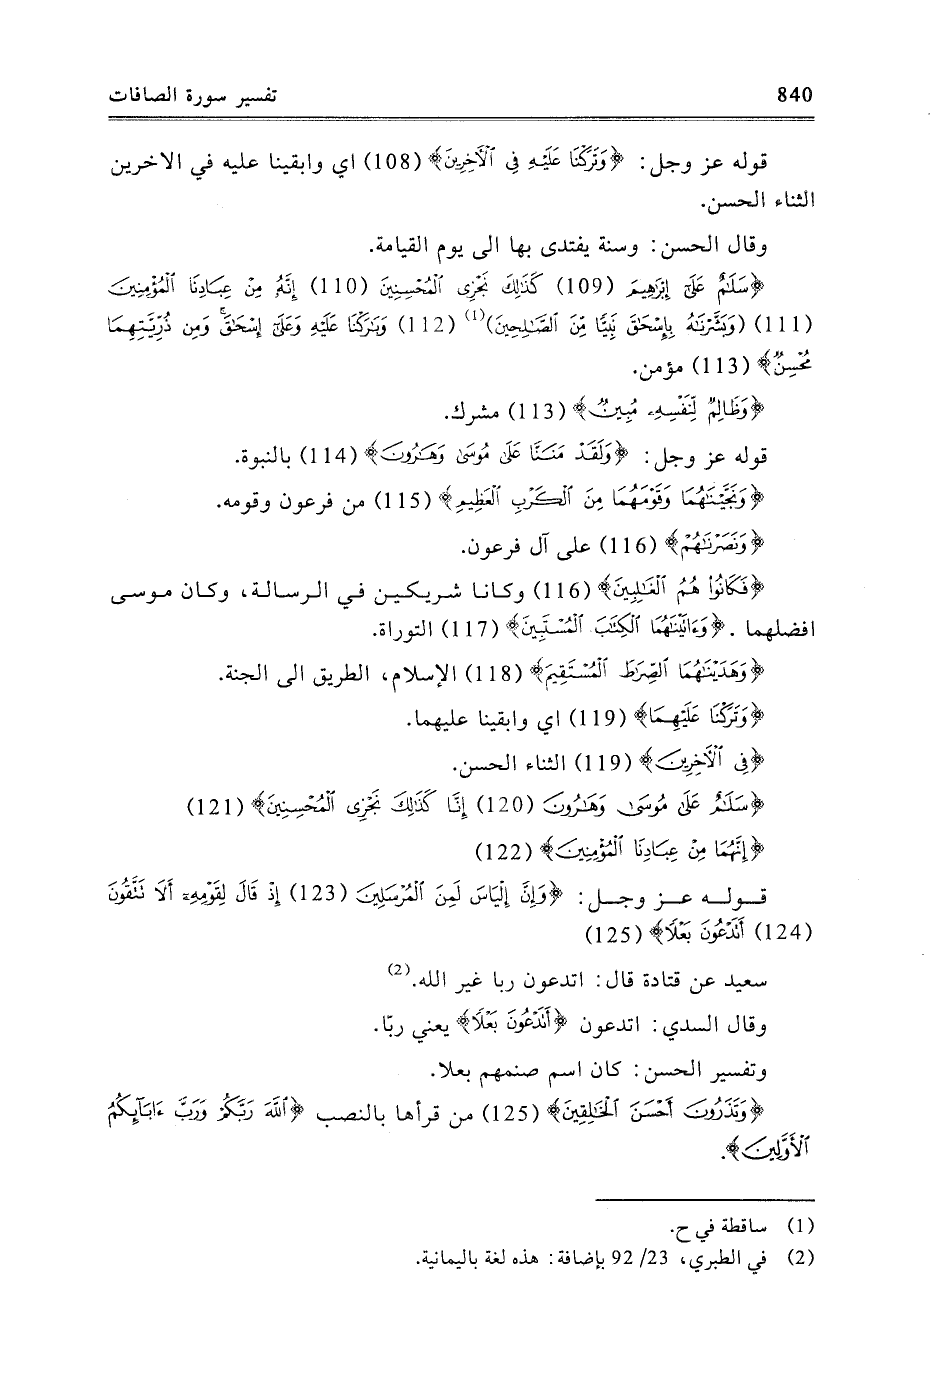 840 تفسير سورة الصافات
قوله عز وجل: ﴿وَتَرَكْنَا عَلَيْهِ فِي ٱلْأَخِرِينَ﴾ (108) اي وابقينا عليه في الاخرين
الثناء الحسن.
وقال الحسن: وسنة يقتدى بها الى يوم القيامة.
﴿سَلَٰمٌ عَلَىٰٓ إِبْرَٰهِيمَ (109) كَذَٰلِكَ نَجْزِى ٱلْمُحْسِنِينَ (110) إِنَّهُۥ مِنْ عِبَادِنَا ٱلْمُؤْمِنِينَ
(111) (وَبَشَّرْنَٰهُ بِإِسْحَٰقَ نَبِيًّا مِّنَ ٱلصَّٰلِحِينَ)(1) (112) وَبَٰرَكْنَا عَلَيْهِ وَعَلَىٰٓ إِسْحَٰقَۚ وَمِن ذُرِّيَّتِهِمَا
مُحْسِنٌ﴾ (113) مؤمن.
﴿وَظَالِمٌ لِّنَفْسِهِۦ مُبِينٌ﴾ (113) مشرك.
قوله عز وجل: ﴿وَلَقَدْ مَنَنَّا عَلَىٰ مُوسَىٰ وَهَٰرُونَ﴾ (114) بالنبوة.
﴿وَنَجَّيْنَٰهُمَا وَقَوْمَهُمَا مِنَ ٱلْكَرْبِ ٱلْعَظِيمِ﴾ (115) من فرعون وقومه.
﴿وَنَصَرْنَٰهُمْ﴾ (116) على آل فرعون.
﴿فَكَانُوا۟ هُمُ ٱلْغَٰلِبِينَ﴾ (116) وكانا شريكين في الرسالة، وكان موسى
افضلهما . ﴿وَءَاتَيْنَٰهُمَا ٱلْكِتَٰبَ ٱلْمُسْتَبِينَ﴾ (117) التوراة.
﴿وَهَدَيْنَٰهُمَا ٱلصِّرَٰطَ ٱلْمُسْتَقِيمَ﴾ (118) الإسلام، الطريق الى الجنة.
﴿وَتَرَكْنَا عَلَيْهِمَا﴾ (119) اي وابقينا عليهما.
﴿فِى ٱلْأَخِرِينَ﴾ (119) الثناء الحسن.
﴿سَلَٰمٌ عَلَىٰ مُوسَىٰ وَهَٰرُونَ (120) إِنَّا كَذَٰلِكَ نَجْزِى ٱلْمُحْسِنِينَ﴾ (121)
﴿إِنَّهُمَا مِنْ عِبَادِنَا ٱلْمُؤْمِنِينَ﴾ (122)
قوله عز وجل: ﴿وَإِنَّ إِلْيَاسَ لَمِنَ ٱلْمُرْسَلِينَ (123) إِذْ قَالَ لِقَوْمِهِۦٓ أَلَا تَتَّقُونَ
(124) أَتَدْعُونَ بَعْلًا﴾ (125)
سعيد عن قتادة قال: اتدعون ربا غير الله.(2)
وقال السدي: اتدعون ﴿أَتَدْعُونَ بَعْلًا﴾ يعني ربّا.
وتفسير الحسن: كان اسم صنمهم بعلا.
﴿وَتَذَرُونَ أَحْسَنَ ٱلْخَٰلِقِينَ﴾ (125) من قرأها بالنصب ﴿ٱللَّهَ رَبَّكُمْ وَرَبَّ ءَابَآئِكُمُ
ٱلْأَوَّلِينَ﴾.
(1) ساقطة في ح.
(2) في الطبري، 23/ 92 بإضافة: هذه لغة باليمانية.